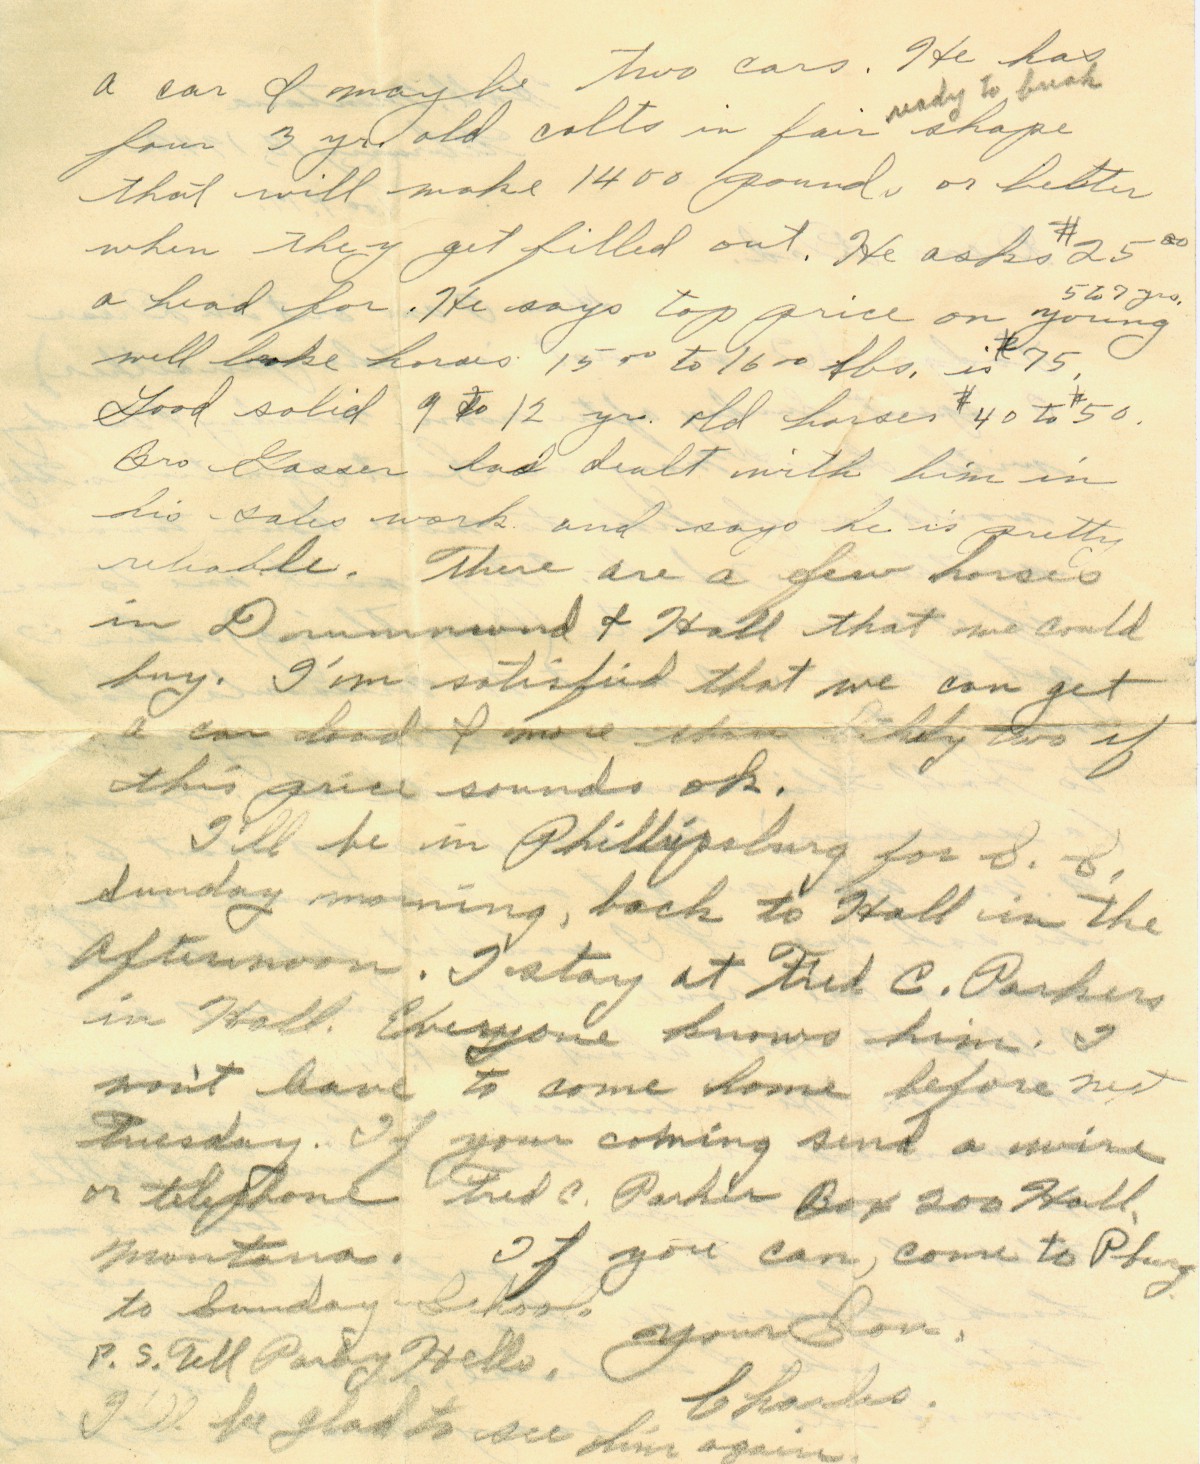 a car & maybe two cars. He has
ready to break
four 3 yr. old colts in fair shape
that will make 1400 pounds or better
when they get filled out. He asks $25 00
a head for. He says top price on 5 to 7 yrs. young
well broke horses 1500 to 1600 lbs. is $75.
Good solid 9 to 12 yr. old horses $40 to $50.
Bro Gasser has dealt with him in
his sales work and says he is pretty
reliable. There are a few horses
in Drummund & Hall that we could
buy. I'm satisfied that we can get
a car load & more than likly two if
this price sounds ok.
I'll be in Phillipsburg for S. S.
Sunday morning, back to Hall in the
afternoon. I stay at Fred C. Parkers
in Hall. Everyone knows him. I
won't leave to come home before next
Tuesday. If your coming send a wire
or telephone Fred C. Parker Box 200 Hall,
Montana. If you can, come to Pburg
to Sunday School.
Your Son,
P. S. Tell Hello.
Charles.
I'll be glad to see him again.